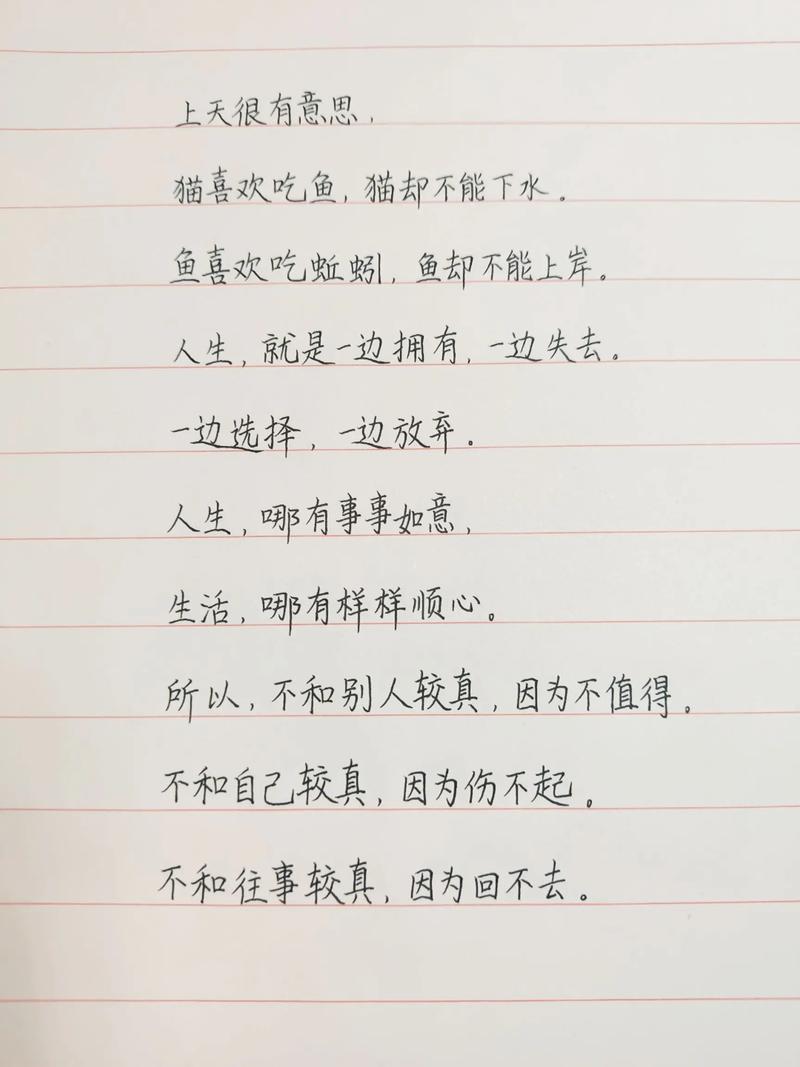 上天很有意思，
猫喜欢吃鱼，猫却不能下水。
鱼喜欢吃蚯蚓，鱼却不能上岸。
人生，就是一边拥有，一边失去。
一边选择，一边放弃。
人生，哪有事事如意，
生活，哪有样样顺心。
所以，不和别人较真，因为不值得。
不和自己较真，因为伤不起。
不和往事较真，因为回不去。